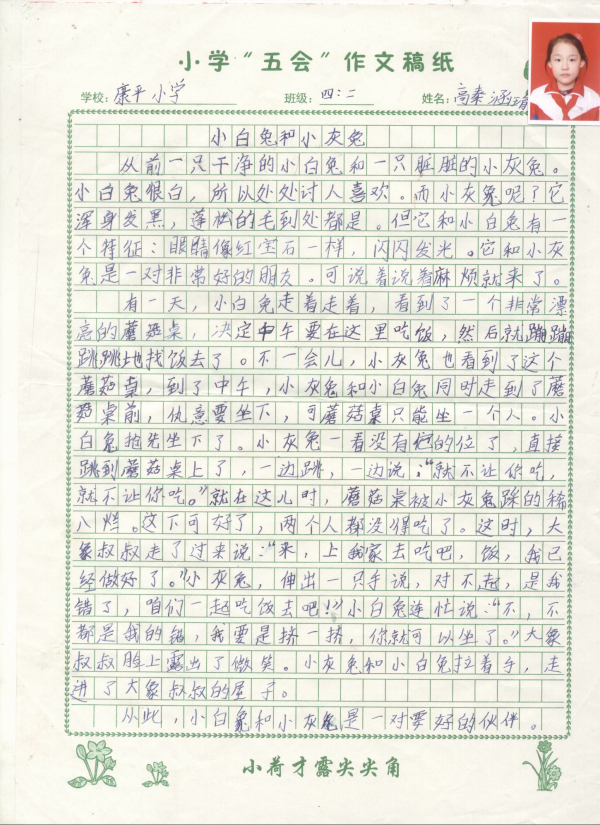 小学“五会”作文稿纸
学校：康平小学 班级：四：二 姓名：高秦涵
小白兔和小灰兔
从前一只干净的小白兔和一只脏脏的小灰兔。
小白兔很白，所以处处讨人喜欢。而小灰兔呢？它
浑身发黑，蓬松的毛到处都是。但它和小白兔有一
个特征：眼睛像红宝石一样，闪闪发光。它和小灰
兔是一对非常好的朋友。可说着说着麻烦就来了。
有一天，小白兔走着走着，看到了一个非常漂
亮的蘑菇桌，决定中午要在这里吃饭，然后就蹦蹦
跳跳地找饭去了。不一会儿，小灰兔也看到了这个
蘑菇桌，到了中午，小灰兔和小白兔同时走到了蘑
菇桌前，执意要坐下，可蘑菇桌只能坐一个人。小
白兔抢先坐下了。小灰兔一看没有他的位了，直接
跳到蘑菇桌上了，一边跳，一边说：“就不让你吃，
就不让你吃。”就在这儿时，蘑菇桌被小灰兔踩的稀
八烂。这下可好了，两个人都没得吃了。这时，大
象叔叔走了过来说：“来，上我家去吃吧，饭，我已
经做好了。”小灰兔，伸出一只手说，对不起，是我
错了，咱们一起吃饭去吧！”小白兔连忙说：“不，不
都是我的错，我要是挤一挤，你就可以坐了。”大象
叔叔脸上露出了微笑。小灰兔和小白兔拉着手，走
进了大象叔叔的屋子。
从此，小白兔和小灰兔是一对要好的伙伴。
小荷才露尖尖角